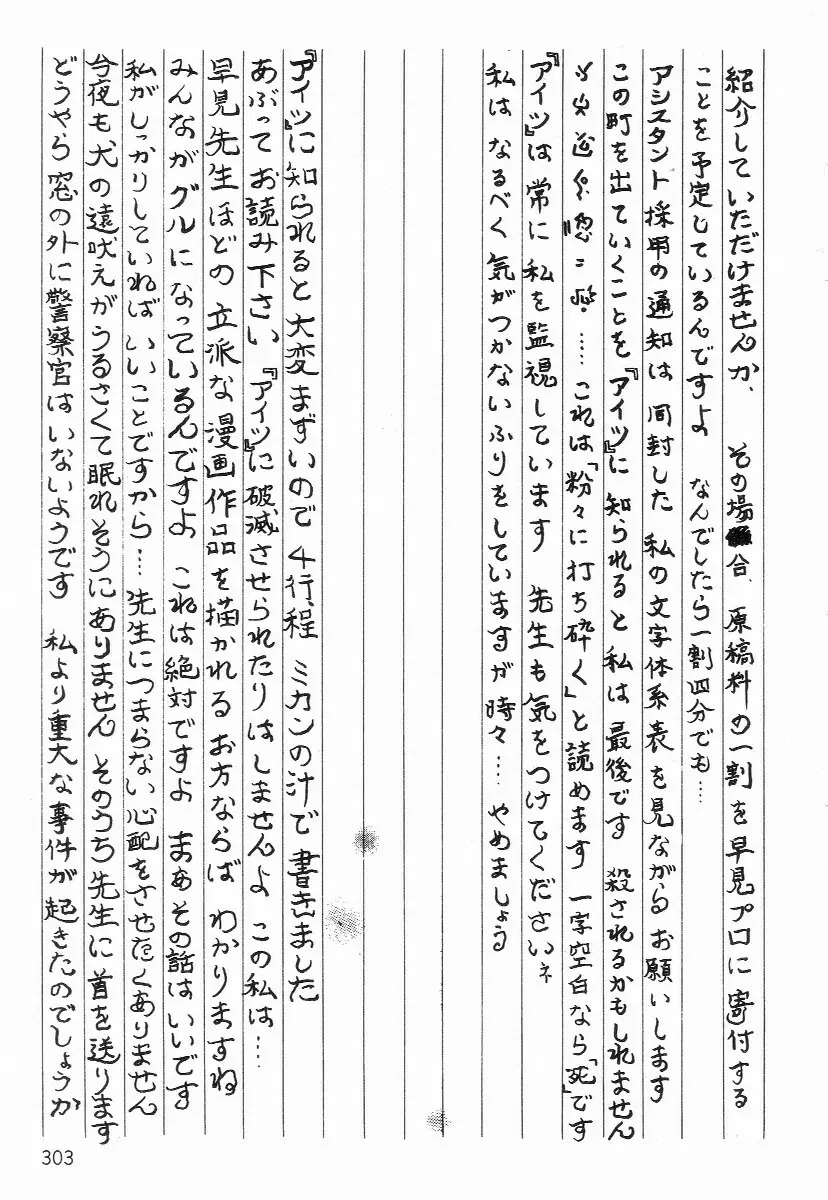 紹介していただけませんか、その場合、原稿料の一割を早見プロに寄付する
ことを予定しているんですよ なんでしたら一割四分でも…
アシスタント採用の通知は同封した私の文字体系表を見ながらお願いします
この町を出ていくことを『アイツ』に知られると私は最後です 殺されるかもしれません
…… これは「粉々に打ち砕く」と読めます 一字空白なら「死」です
『アイツ』は常に私を監視しています 先生も気をつけてくださいネ
私はなるべく気がつかないふりをしていますが時々…やめましょう
『アイツ』に知られると大変まずいので4行程ミカンの汁で書きました
あぶってお読み下さい『アイツ』に破滅させられたりはしませんよ この私は…
早見先生ほどの立派な漫画作品を描かれるお方ならばわかりますね
みんながグルになっているんですよ これは絶対ですよ まぁその話はいいです
私がしっかりしていればいいことですから…先生につまらない心配をさせたくありません
今夜も犬の遠吠えがうるさくて眠れそうにありません そのうち先生に首を送ります
どうやら窓の外に警察官はいないようです 私より重大な事件が起きたのでしょうか
303